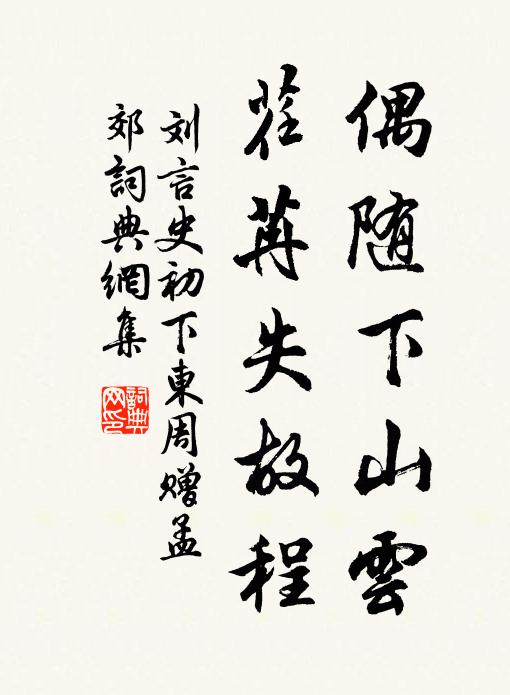 偶随下山雲
荏苒失故程
刘言史初下東周赠孟
郊詞典網集
詞典网印